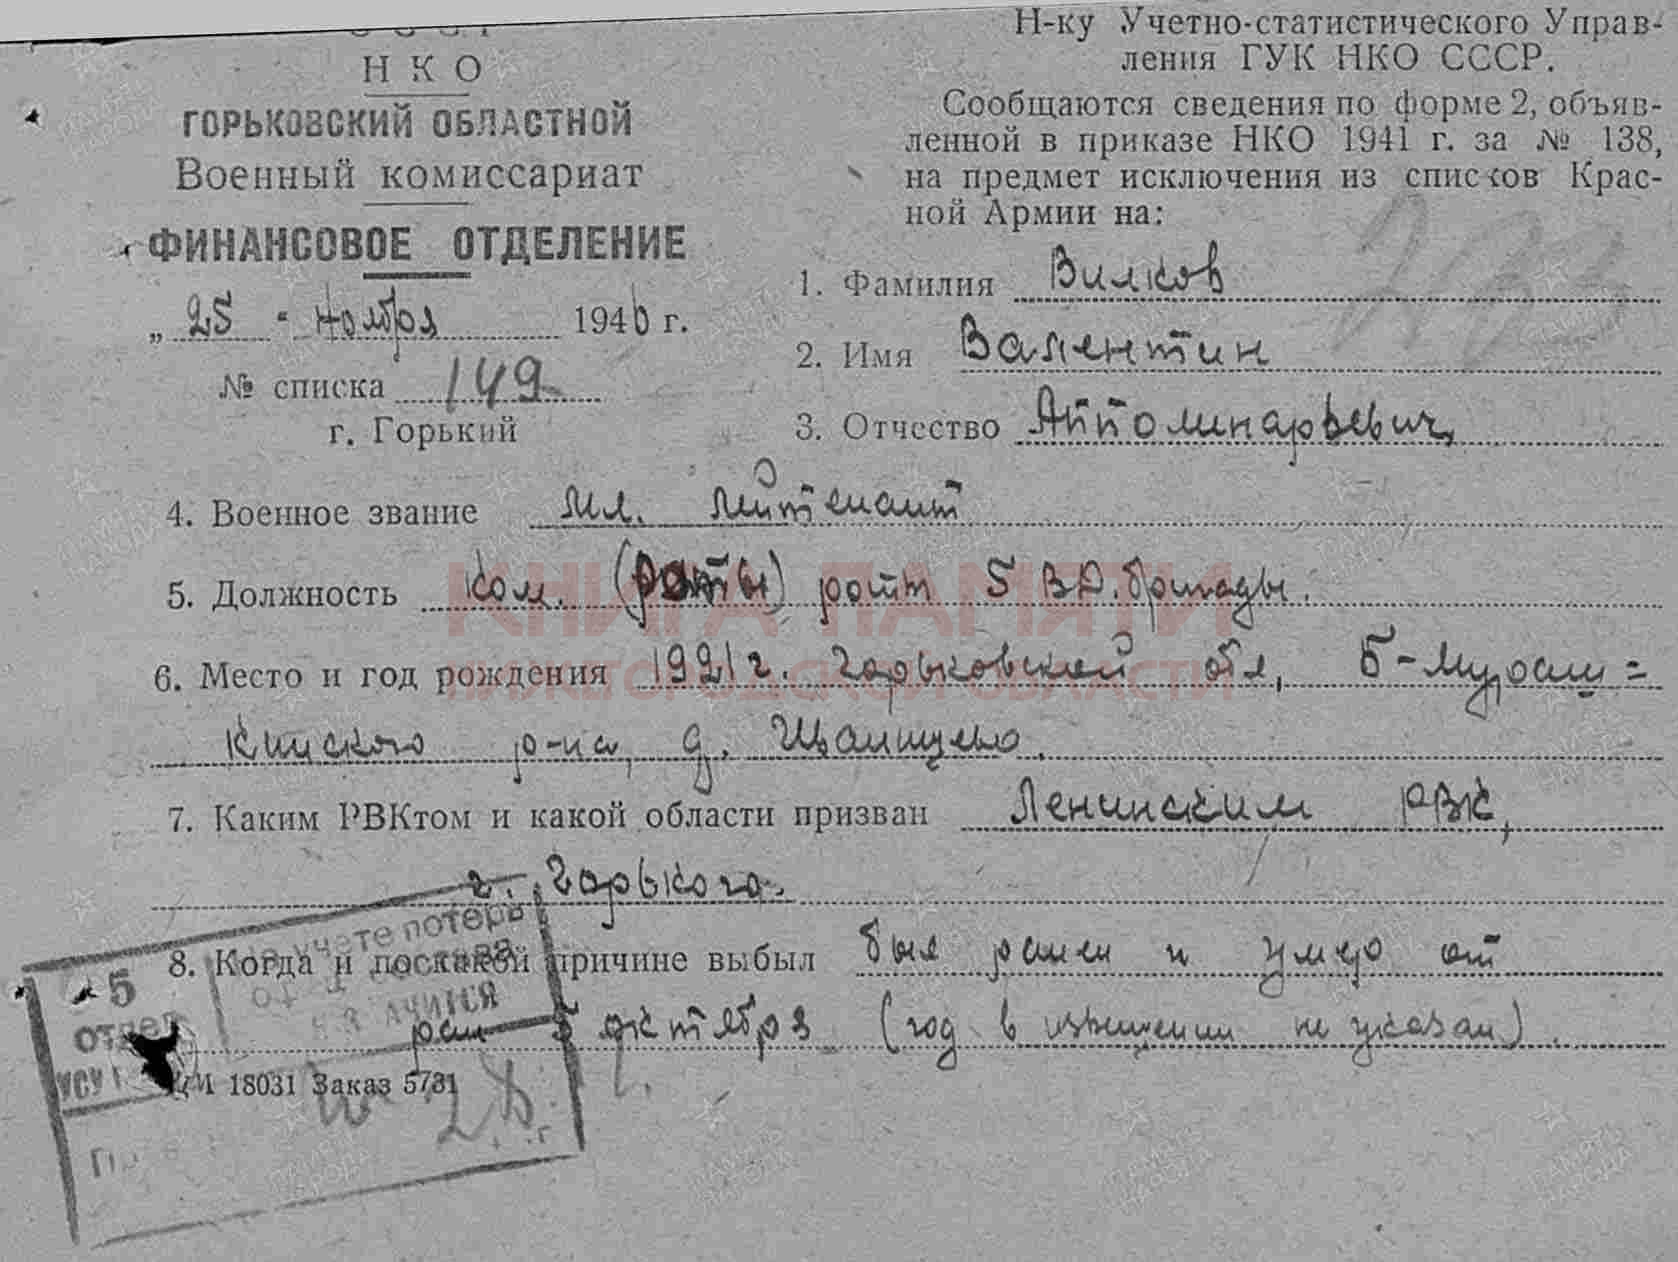 НКО
ГОРЬКОВСКИЙ ОБЛАСТНОЙ
Военный комиссариат
ФИНАНСОВОЕ ОТДЕЛЕНИЕ
„ 25 " Ноября 1946 г.
№ списка 149
г. Горький
Н-ку Учетно-статистического Управ-
ления ГУК НКО СССР.
Сообщаются сведения по форме 2, объяв-
ленной в приказе НКО 1941 г. за № 138,
на предмет исключения из списков Крас-
ной Армии на:
1. Фамилия Вилков
2. Имя Валентин
3. Отчество Апполинарьевич,
4. Военное звание Мл. лейтенант
5. Должность Ком. (роты) роты 5 ВД. бригады.
6. Место и год рождения 1921 г. Горьковской обл, Б-Мураш=
кинского р-на, д. Иванцево.
7. Каким РВКтом и какой области призван Ленинским РВК,
г. Горького.
8. Когда и по какой причине выбыл был ранен и умер от
ран 5 октября (год в извещении не указан).
18031 Заказ 5731
на учете потерь
5
отдел
УСУ
КНИГА ПАМЯТИ
НИЖЕГОРОДСКОЙ ОБЛАСТИ
ПАМЯТЬ НАРОДА